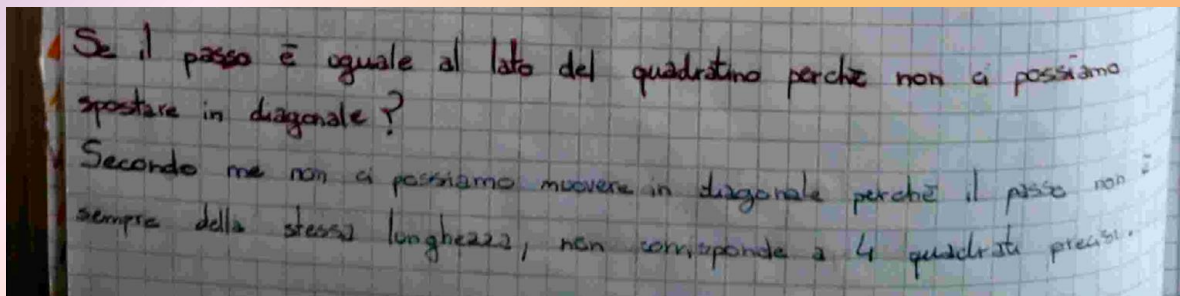 Se il passo è oguale al lato del quadratino perchè non ci possiamo
spostare in diagonale?
Secondo me non ci possiamo muovere in diagonale perchè il passo non è
sempre della stessa lunghezza, non corrisponde a 4 quadrati precisi.